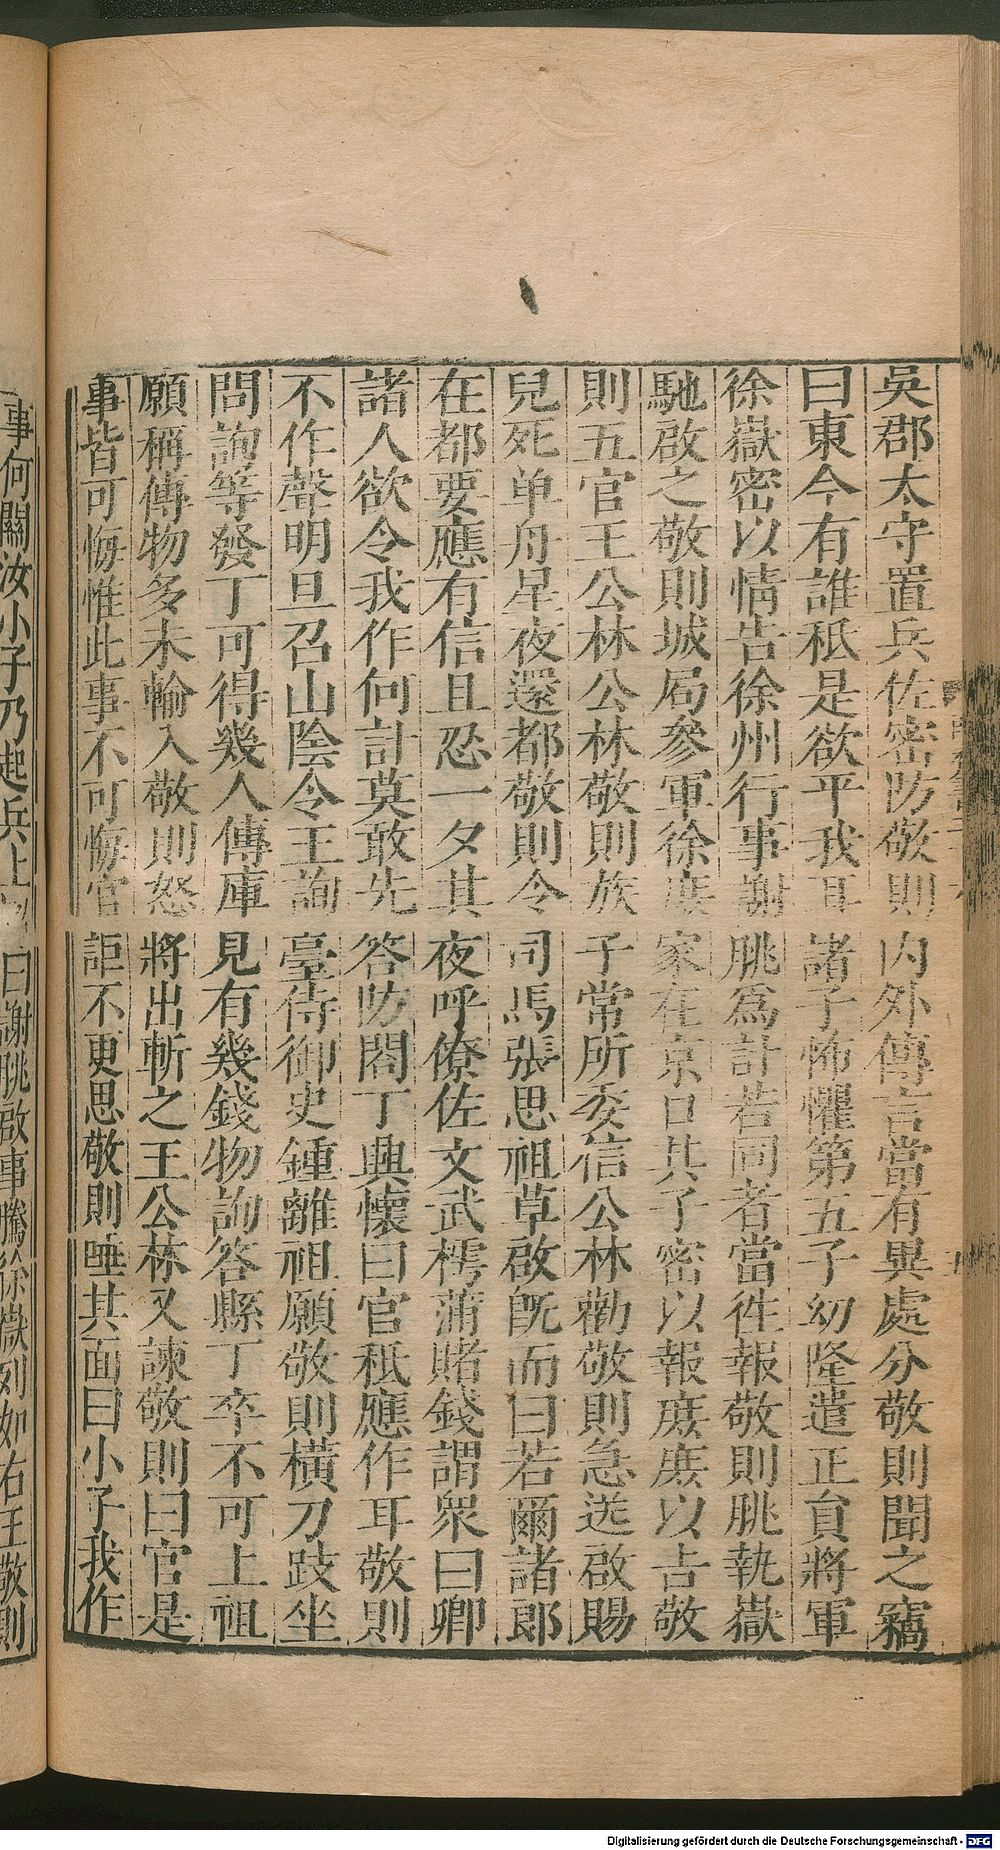 吳郡太守置兵佐密防敬則內外傳言當有異處分敬則聞之竊
曰東今有誰秖是欲平我耳諸子怖懼第五子幼隆遣正員將軍
徐嶽密以情告徐州行事謝朓爲計若同者當徃報敬則朓執嶽
馳啟之敬則城局參軍徐庶家在京口其子密以報庶庶以告敬
則五官王公林公林敬則族子常所委信公林勸敬則急送啟賜
兒死单舟星夜還都敬則令司馬張思祖草啟旣而曰若爾諸郎
在都要應有信且忍一夕其夜呼僚佐文武樗蒲賭錢謂衆曰卿
諸人欲令我作何計莫敢先答防閤丁興懷曰官秖應作耳敬則
不作聲明旦召山陰令王詢臺侍御史鍾離祖願敬則橫刀跂坐
問詢等發丁可得幾人傳庫見有幾錢物詢答縣丁卒不可上祖
願稱傳物多未輸入敬則怒將出斬之王公林又諫敬則曰官是
事皆可悔惟此事不可悔官詎不更思敬則唾其面曰小子我作
事何關汝小子乃起兵上 曰謝朓啟事騰徐嶽列如右王敬則
Digitalisierung gefördert durch die Deutsche Forschungsgemeinschaft - DFG